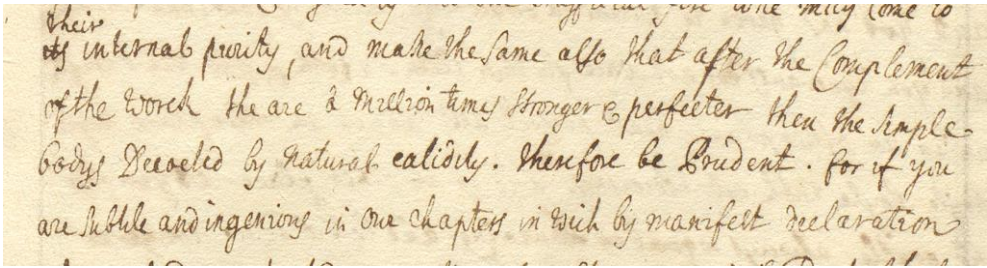 may come to
their
its internal purity, and make the same also that after the Complement
of the worck the are a Million times stronger & perfecter then the simple
bodys Decocted by natural calidity. therefore be Prudent. for if you
are subtile and ingenious in our chapters in wich by manifest declaration